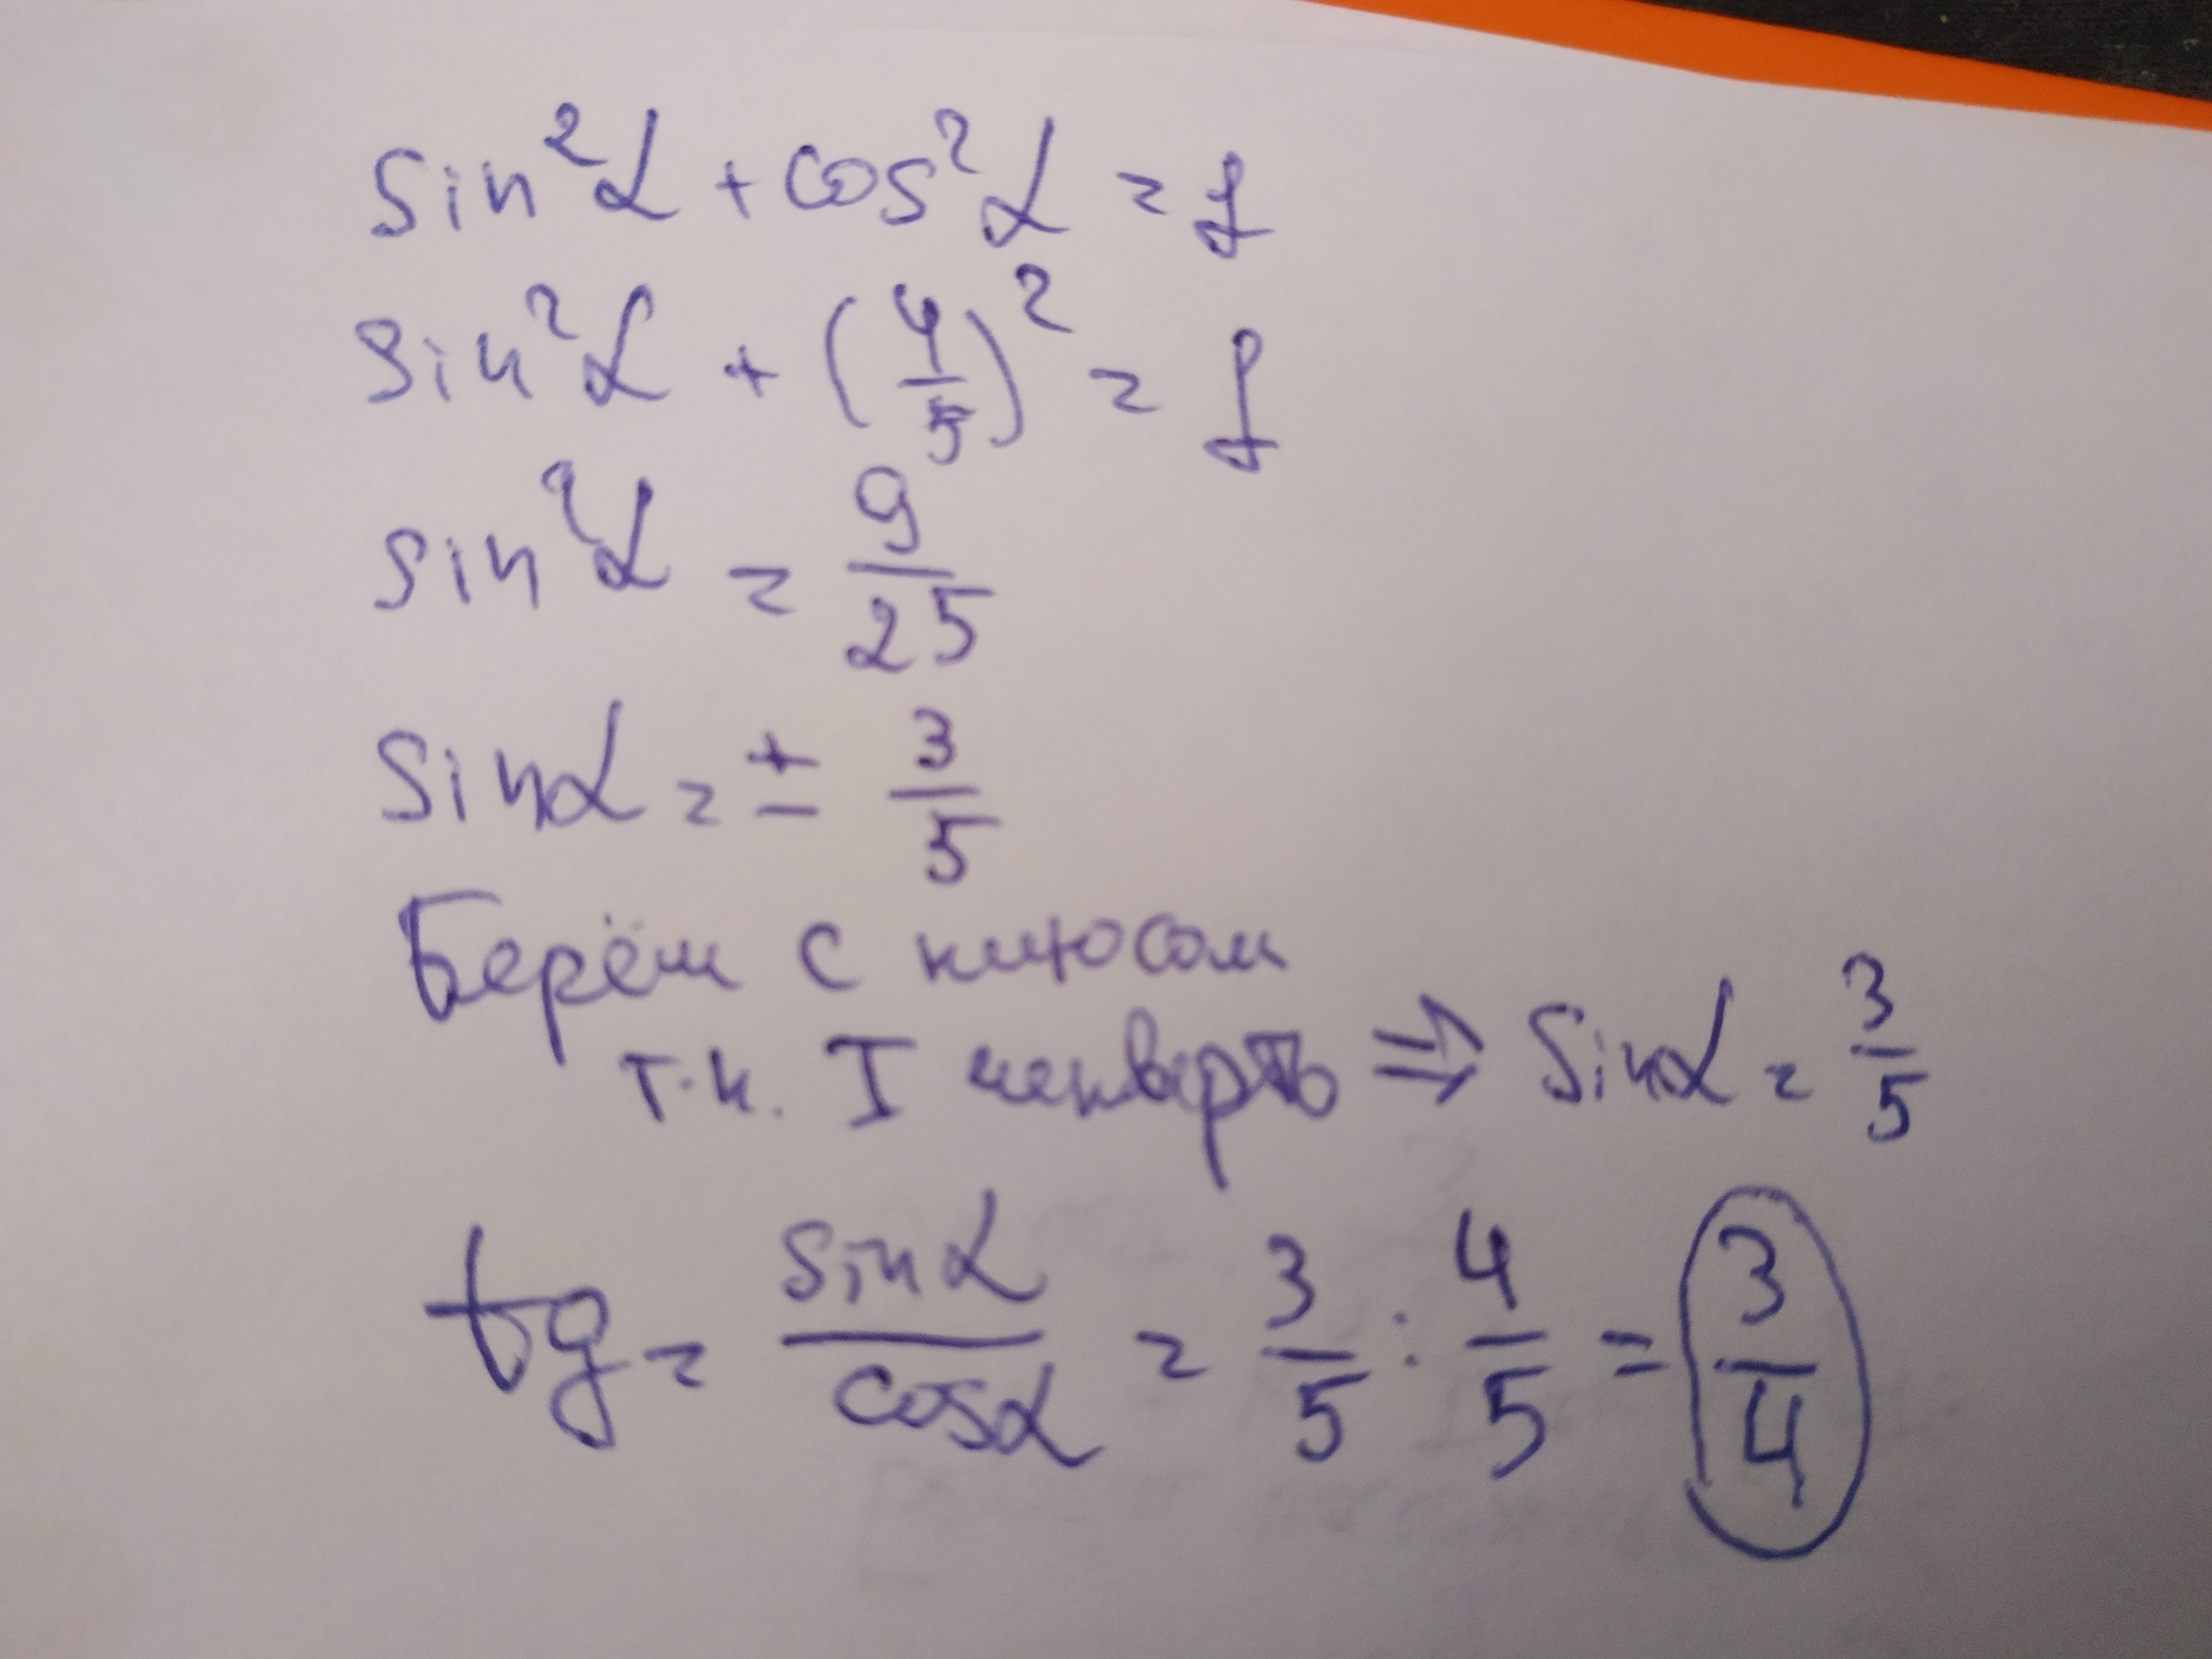 sin²α + cos²α = 1
sin²α + (4/5)² = 1
sin²α = 9/25
sinα = ± 3/5
Берём с плюсом
т.к. I четверть ⇒ sinα = 3/5
tg = sinα/cosα = 3/5 : 4/5 = 3/4